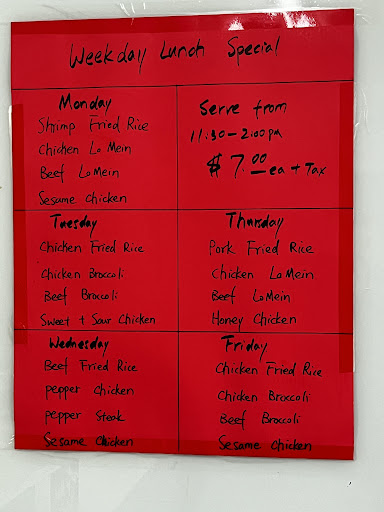 Weekday Lunch Special
Monday
Shrimp Fried Rice
Chicken Lo Mein
Beef Lo Mein
Sesame Chicken
Serve from
11:30-2:00 pm
$7.00 ea + Tax
Tuesday
Chicken Fried Rice
Chicken Broccoli
Beef Broccoli
Sweet + Sour Chicken
Thursday
Pork Fried Rice
Chicken Lo Mein
Beef Lo Mein
Honey Chicken
Wednesday
Beef Fried Rice
pepper chicken
pepper steak
Sesame Chicken
Friday
Chicken Fried Rice
Chicken Broccoli
Beef Broccoli
Sesame Chicken